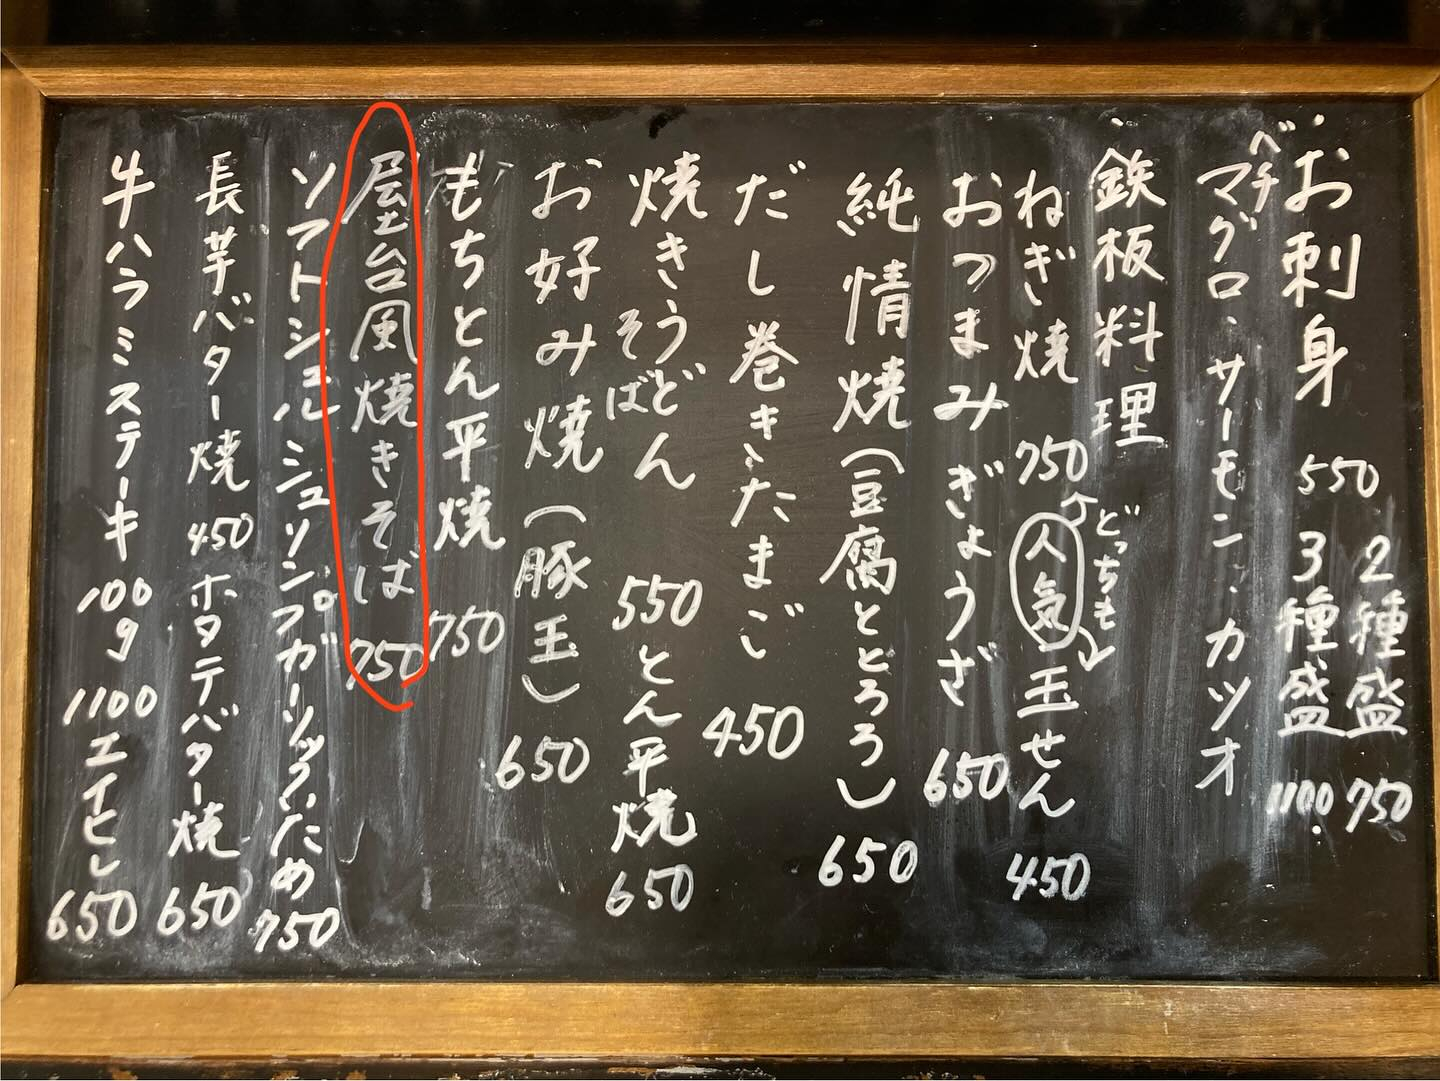 お刺身 550 2種盛 750
3種盛 1100
ベチマグロ・サーモン・カツオ
鉄板料理
ねぎ焼 750 人気 玉せん 450
どっちも
おつまみぎょうざ 650
純情焼(豆腐ととろろ) 650
だし巻きたまご 450
焼きうどん 550 とん平焼 650
そば
お好み焼(豚玉) 650
もちとん平焼 750
屋台風焼きそば 750
ソフトシェルシュリンプガーリックいため 750
長芋バター焼 450 ホタテバター焼 650
牛ハラミステーキ 100g 1100 エイヒレ 650